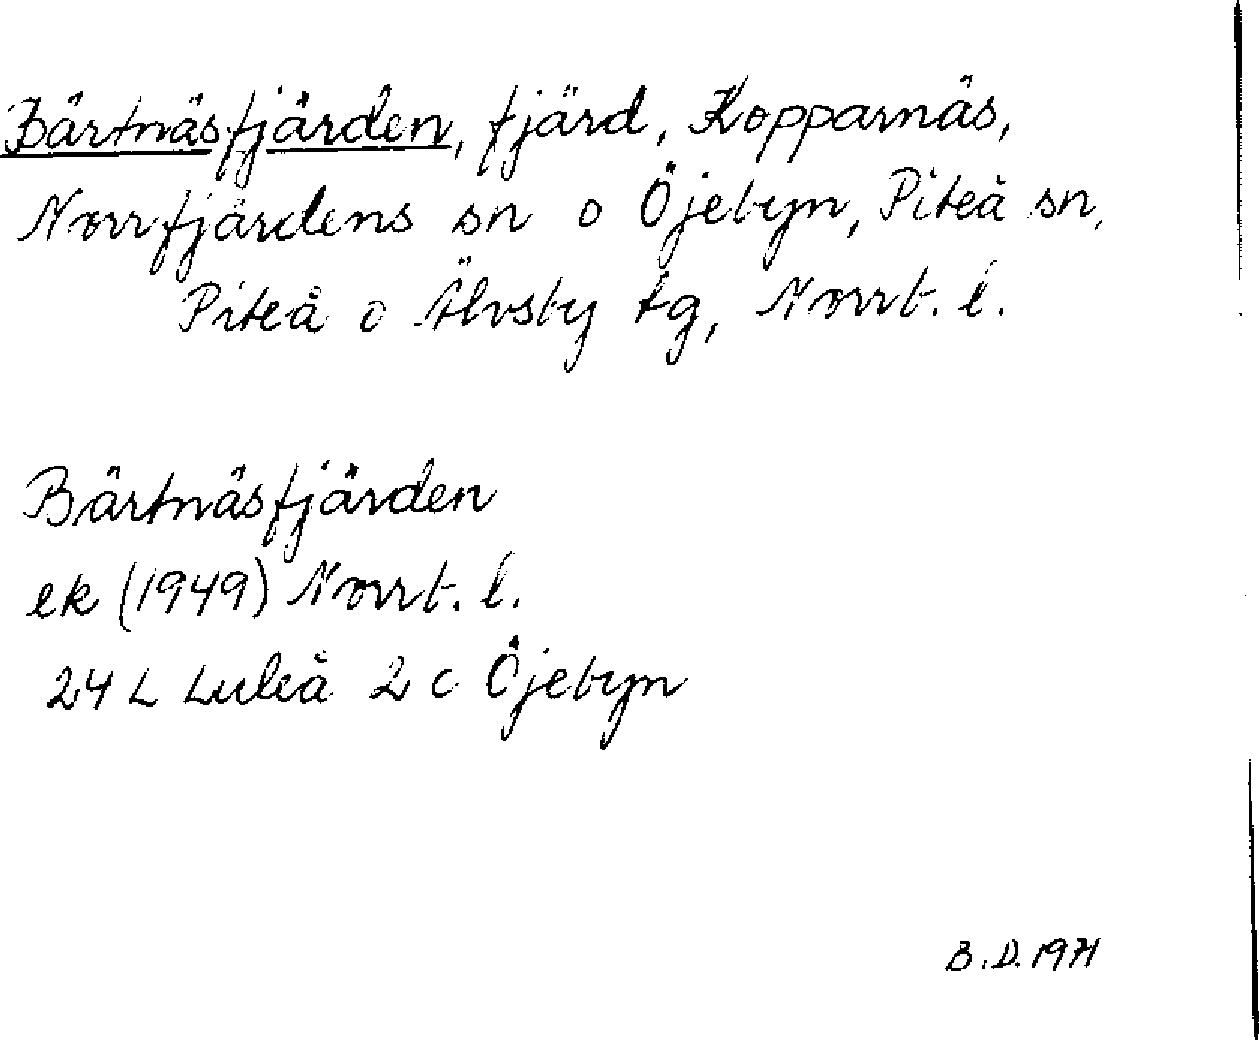 Bärtnäsfjärden, fjärd, Kopparnäs,
Norrfjärdens sn o Öjebyn, Piteå sn,
Piteå o Älvsby tg, Norrb. l.
Bärtnäsfjärden
ek (1949) Norrb. l.
24 L Luleå 2 c Öjebyn
B.D. 1971